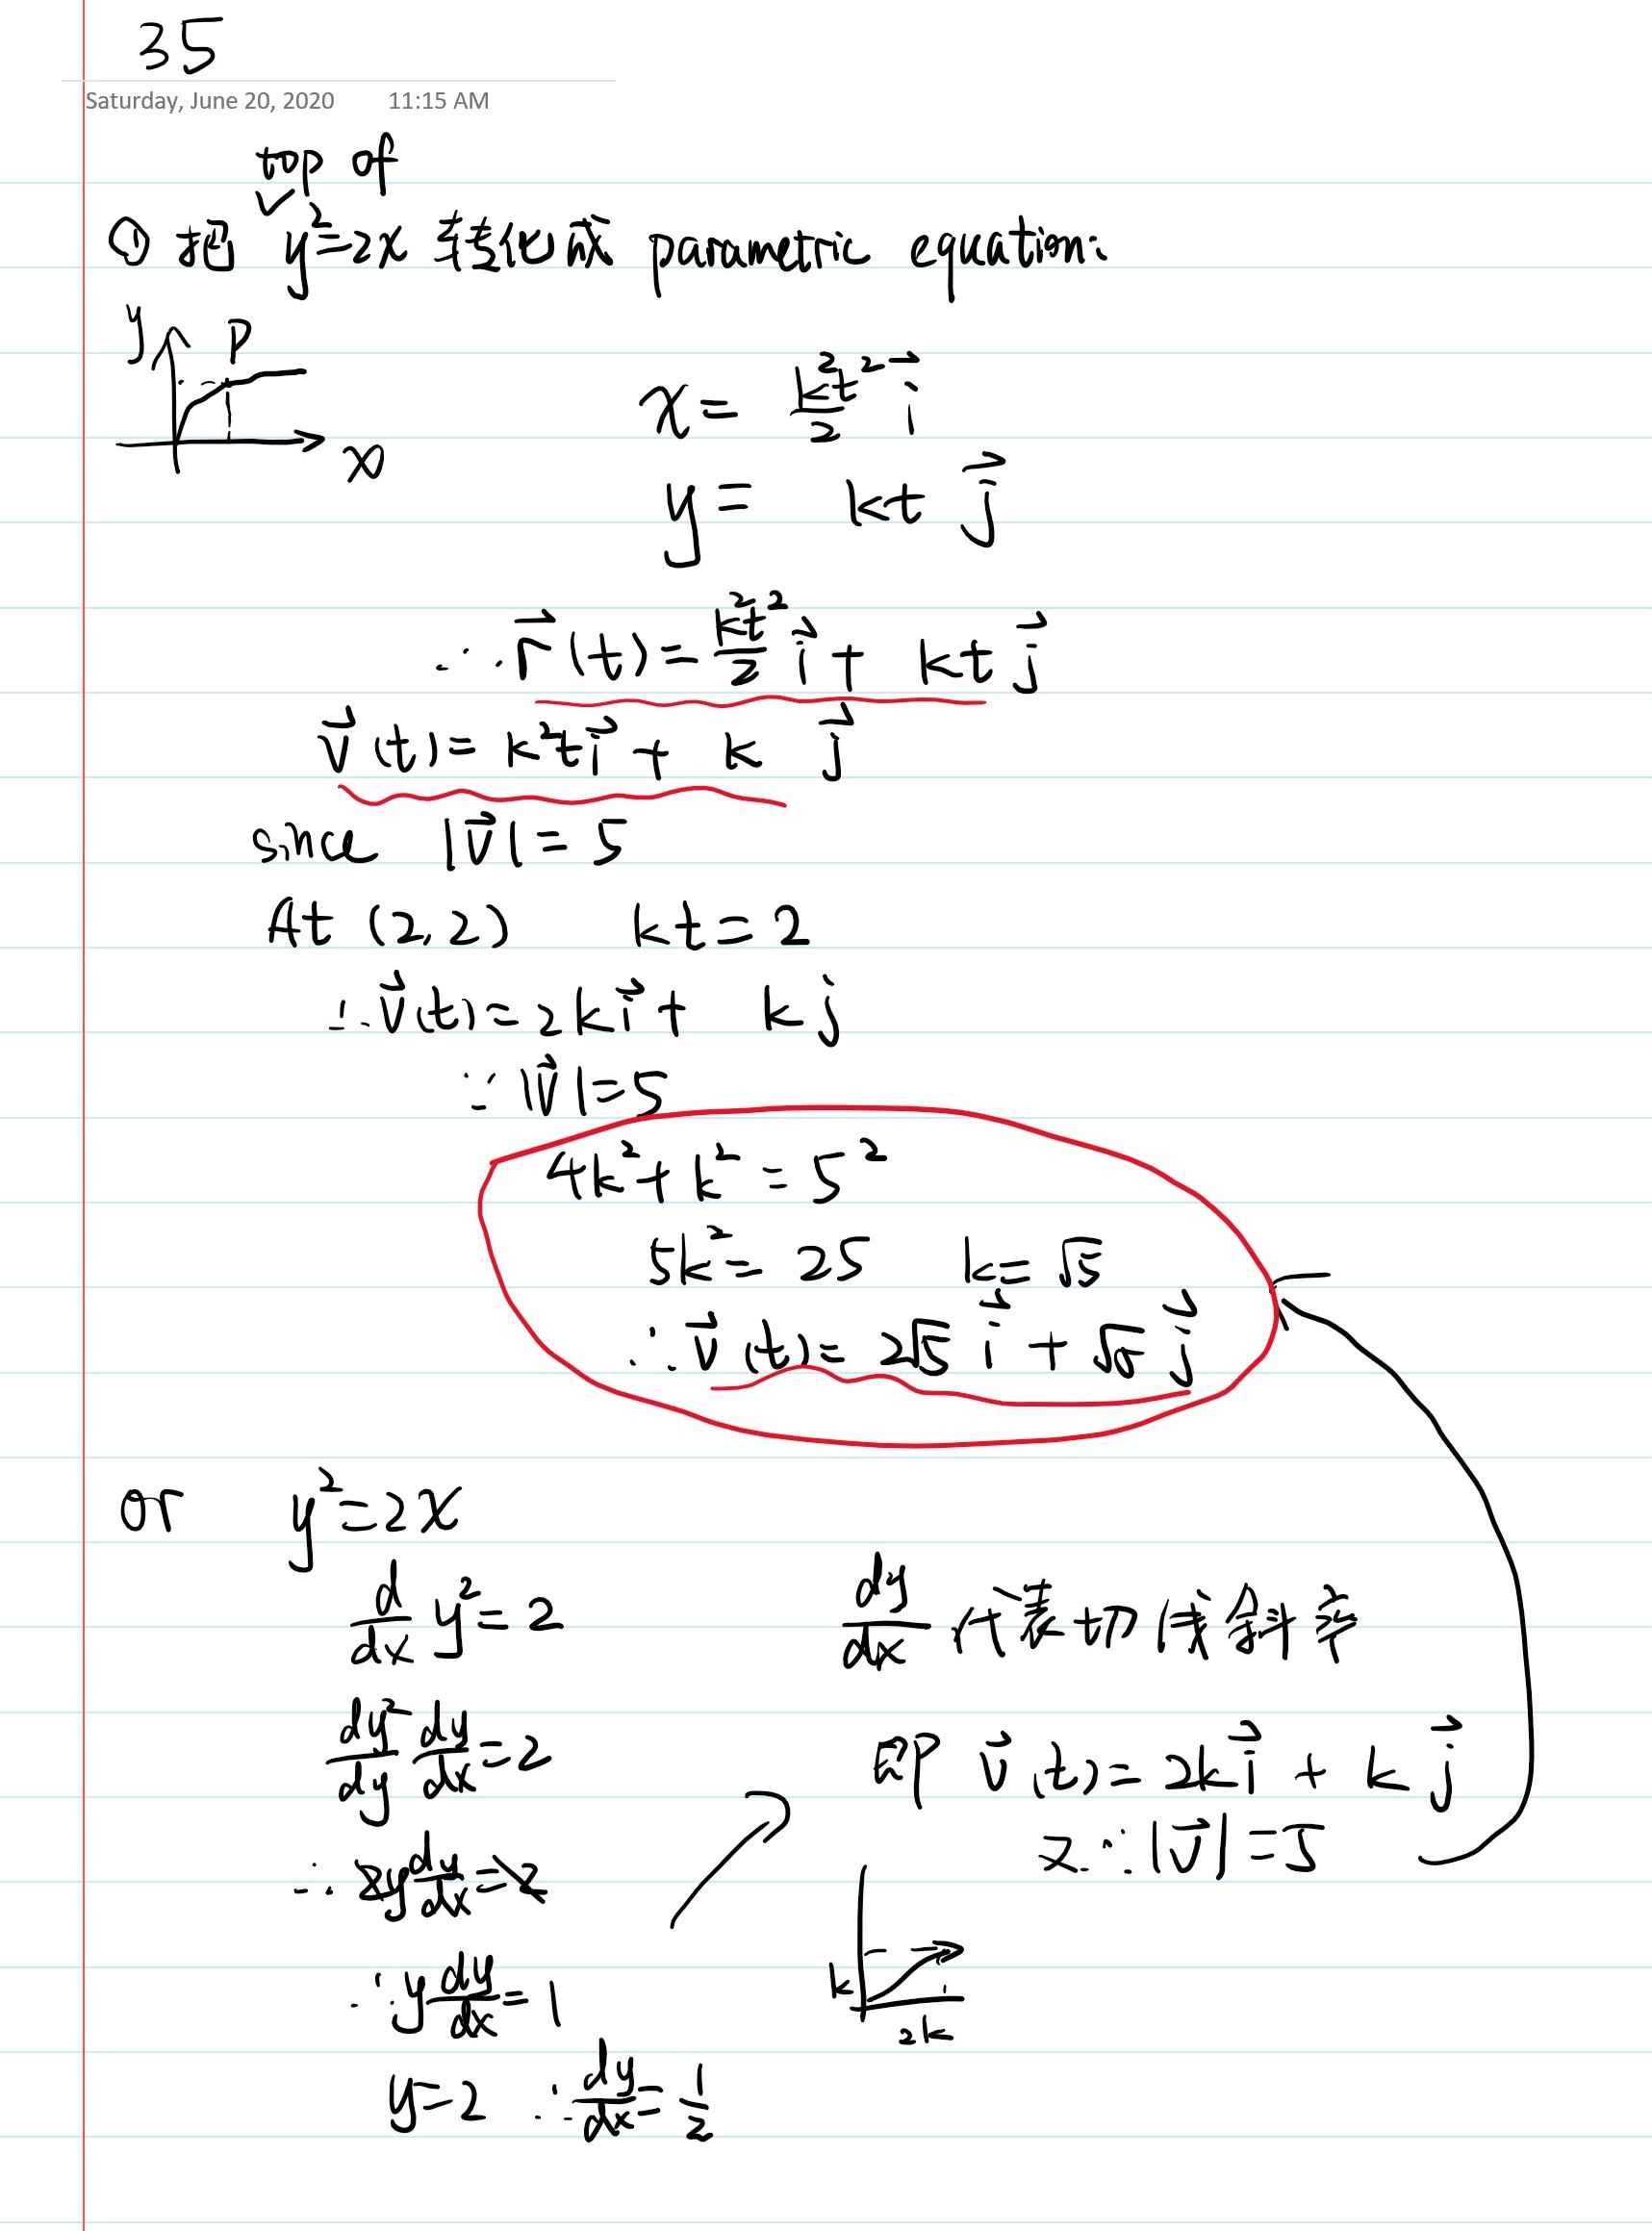 35
Saturday, June 20, 2020 11:15 AM
top of
① 把 y²=2x 转化成 parametric equation:
y
P
x
x= k²t²/2 i⃗
y= kt j⃗
∴ r⃗(t)= k²t²/2 i⃗ + kt j⃗
v⃗(t)= k²t i⃗ + k j⃗
since |v⃗|=5
At (2,2) kt=2
∴ v⃗(t)=2k i⃗ + k j
∵ |v⃗|=5
4k²+k²=5²
5k²=25 k=√5
∴ v⃗(t)=2√5 i⃗ + √5 j⃗
or y²=2x
d/dx y²=2
dy²/dy dy/dx=2
∴ 2y dy/dx=2
∴ y dy/dx=1
y=2 ∴ dy/dx=1/2
dy/dx 代表切线斜率
即 v⃗(t)=2k i⃗ + k j⃗
又∵ |v⃗|=5
k
2k